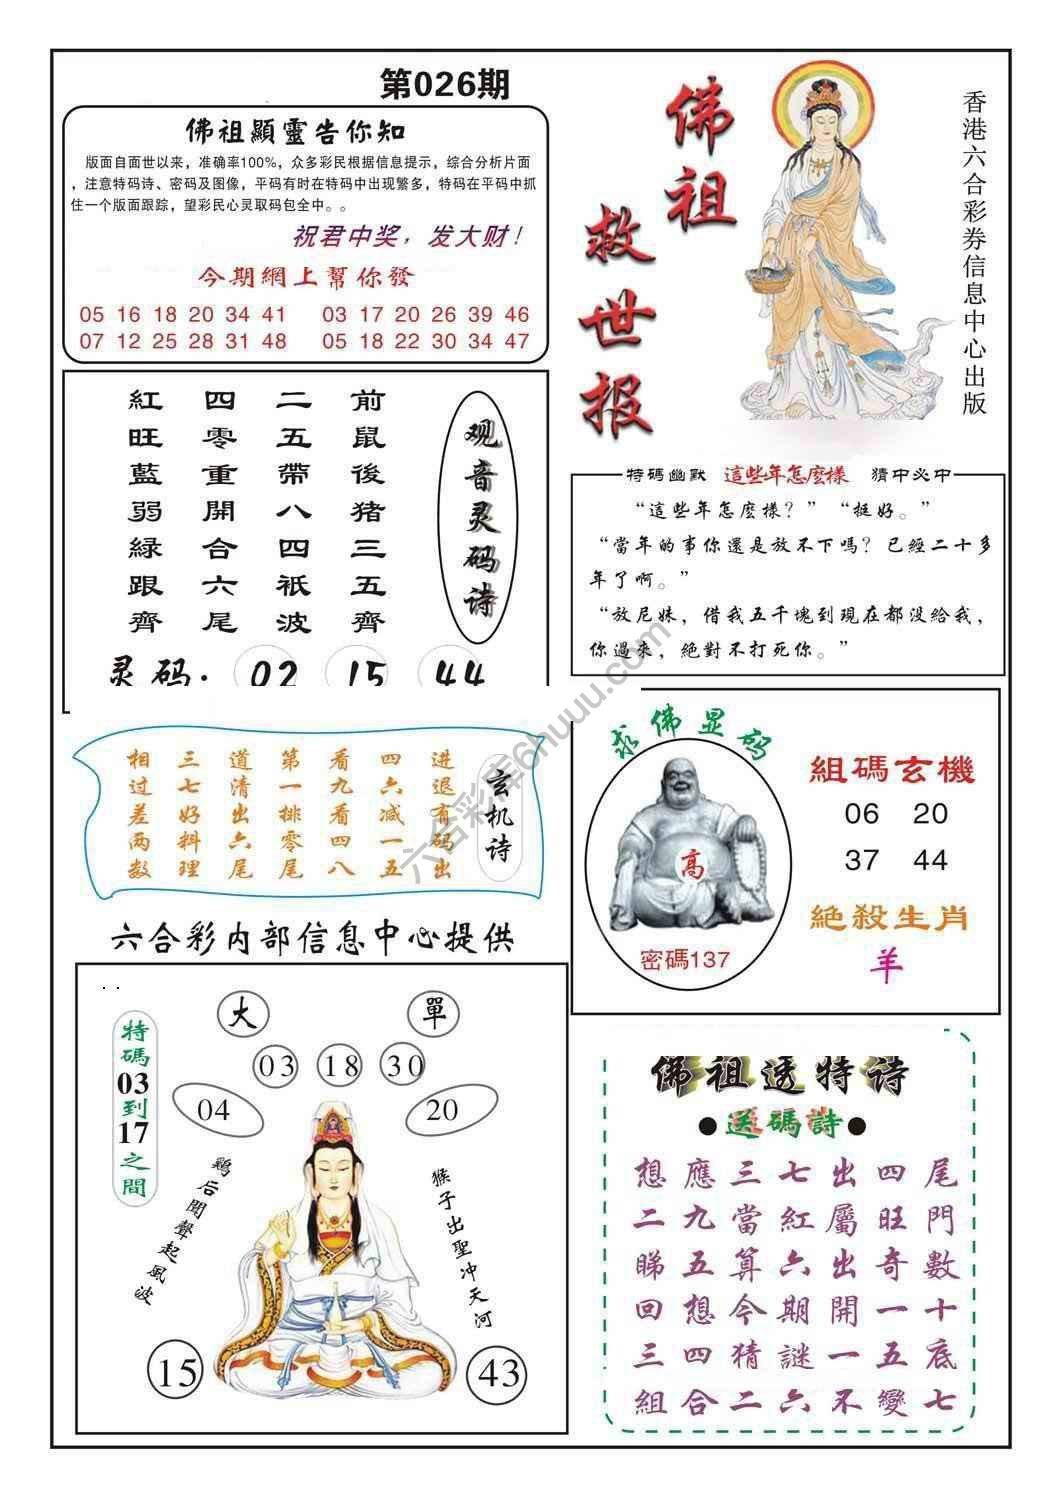 第026期
佛祖顯靈告你知
版面自面世以来，准确率100%，众多彩民根据信息提示，综合分析片面
，注意特码诗、密码及图像，平码有时在特码中出现繁多，特码在平码中抓
住一个版面跟踪，望彩民心灵取码包全中。。
祝君中奖，发大财！
今期網上幫你發
05 16 18 20 34 41 03 17 20 26 39 46
07 12 25 28 31 48 05 18 22 30 34 47
佛祖
救世报
香港六合彩券信息中心出版
观音灵码诗
前鼠後猪三五齊
二五帶八四衹波
四零重開合六尾
紅旺藍弱綠跟齊
灵码：02 15 44
特碼幽默 這些年怎麽樣 猜中必中
“這些年怎麽樣？”“挺好。”
“當年的事你還是放不下嗎？已經二十多
年了啊。”
“放尼妹，借我五千塊到現在都没給我，
你過来，絕對不打死你。”
玄机诗
进退有码出
四六减一五
看九看四八
第一排零尾
道清出六尾
三七好料理
相过差两数
求佛显码
高
密碼137
組碼玄機
06 20
37 44
絕殺生肖
羊
六合彩内部信息中心提供
大
單
03 18 30
04
20
特碼03到17之間
鷄后聞聲起風波
猴子出聖冲天河
15
43
佛祖透特诗
●送碼詩●
想應三七出四尾
二九當紅屬旺門
睇五算六出奇數
回想今期開一十
三四猜謎一五底
組合二六不變七
六合彩库6huuu.com